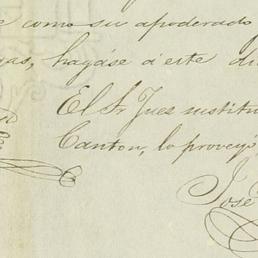 como su apoderado
hagáse á este
El Sr Juez
Canton, lo proveyó
José